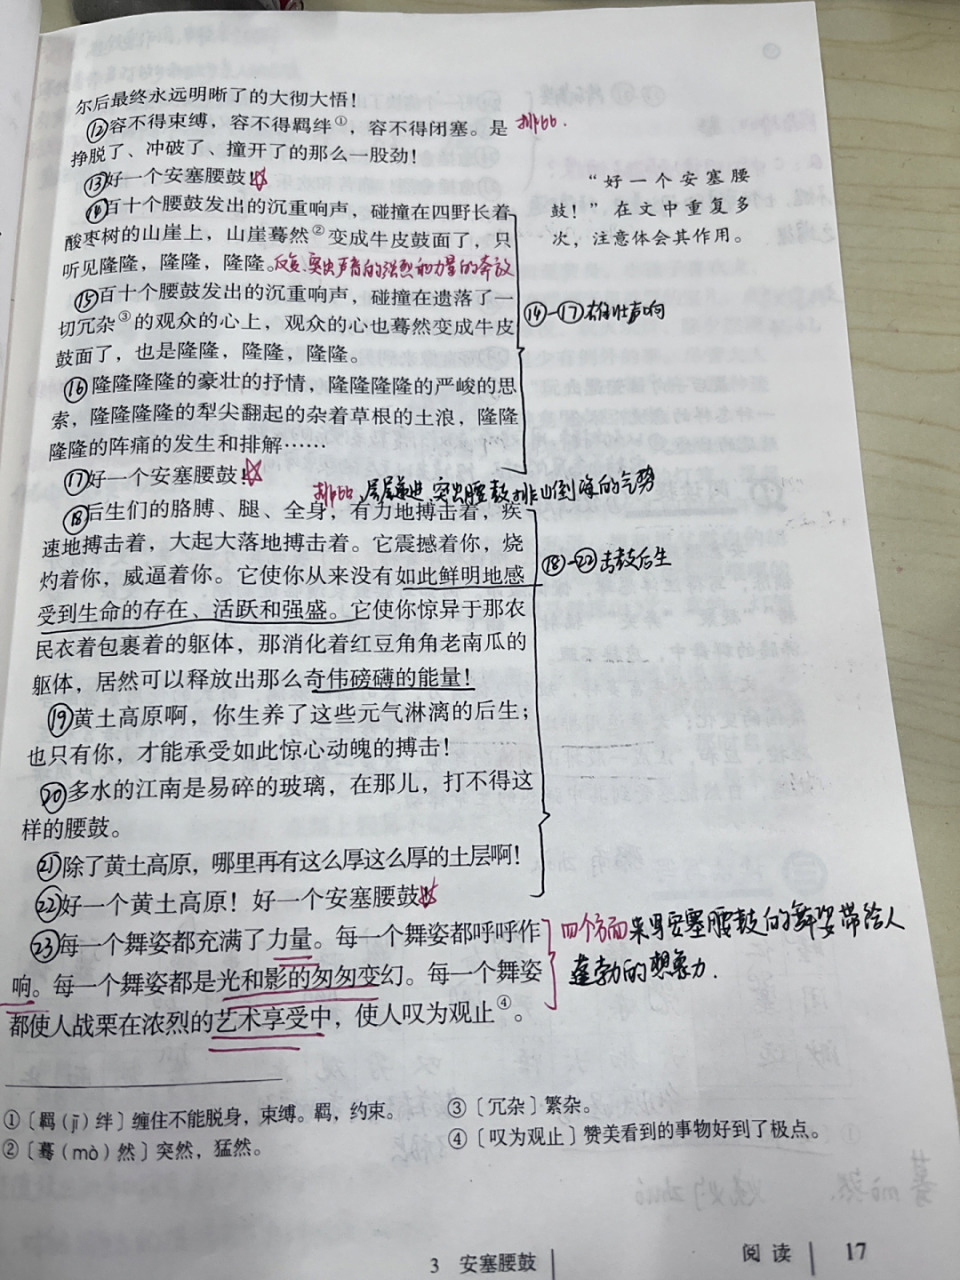 尔后最终永远明晰了的大彻大悟！
⑫容不得束缚，容不得羁绊①，容不得闭塞。是 排比.
挣脱了、冲破了、撞开了的那么一股劲！
⑬好一个安塞腰鼓！☆
“好一个安塞腰
鼓！”在文中重复多
次，注意体会其作用。
⑭百十个腰鼓发出的沉重响声，碰撞在四野长着
酸枣树的山崖上，山崖蓦然②变成牛皮鼓面了，只
听见隆隆，隆隆，隆隆。反复、突出声音的强烈和力量的奔放
⑮百十个腰鼓发出的沉重响声，碰撞在遗落了一
切冗杂③的观众的心上，观众的心也蓦然变成牛皮
鼓面了，也是隆隆，隆隆，隆隆。
⑭—⑰雄壮声响
⑯隆隆隆隆的豪壮的抒情，隆隆隆隆的严峻的思
索，隆隆隆隆的犁尖翻起的杂着草根的土浪，隆隆
隆隆的阵痛的发生和排解……
⑰好一个安塞腰鼓！☆
排比，层层递进，突出腰鼓排山倒海的气势
⑱后生们的胳膊、腿、全身，有力地搏击着，疾
速地搏击着，大起大落地搏击着。它震撼着你，烧
灼着你，威逼着你。它使你从来没有如此鲜明地感
受到生命的存在、活跃和强盛。它使你惊异于那农
民衣着包裹着的躯体，那消化着红豆角角老南瓜的
躯体，居然可以释放出那么奇伟磅礴的能量！
⑱—㉒击鼓后生
⑲黄土高原啊，你生养了这些元气淋漓的后生；
也只有你，才能承受如此惊心动魄的搏击！
⑳多水的江南是易碎的玻璃，在那儿，打不得这
样的腰鼓。
㉑除了黄土高原，哪里再有这么厚这么厚的土层啊！
㉒好一个黄土高原！好一个安塞腰鼓！☆
㉓每一个舞姿都充满了力量。每一个舞姿都呼呼作
响。每一个舞姿都是光和影的匆匆变幻。每一个舞姿
都使人战栗在浓烈的艺术享受中，使人叹为观止④。
四个方面来写安塞腰鼓的舞姿带给人
蓬勃的想象力.
①〔羁（jī）绊〕缠住不能脱身，束缚。羁，约束。
②〔蓦（mò）然〕突然，猛然。
③〔冗杂〕繁杂。
④〔叹为观止〕赞美看到的事物好到了极点。
3 安塞腰鼓
阅读 17